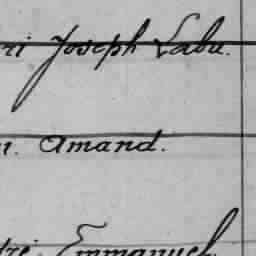 ri Joseph Labu.
Amand.
tri Emmanuel